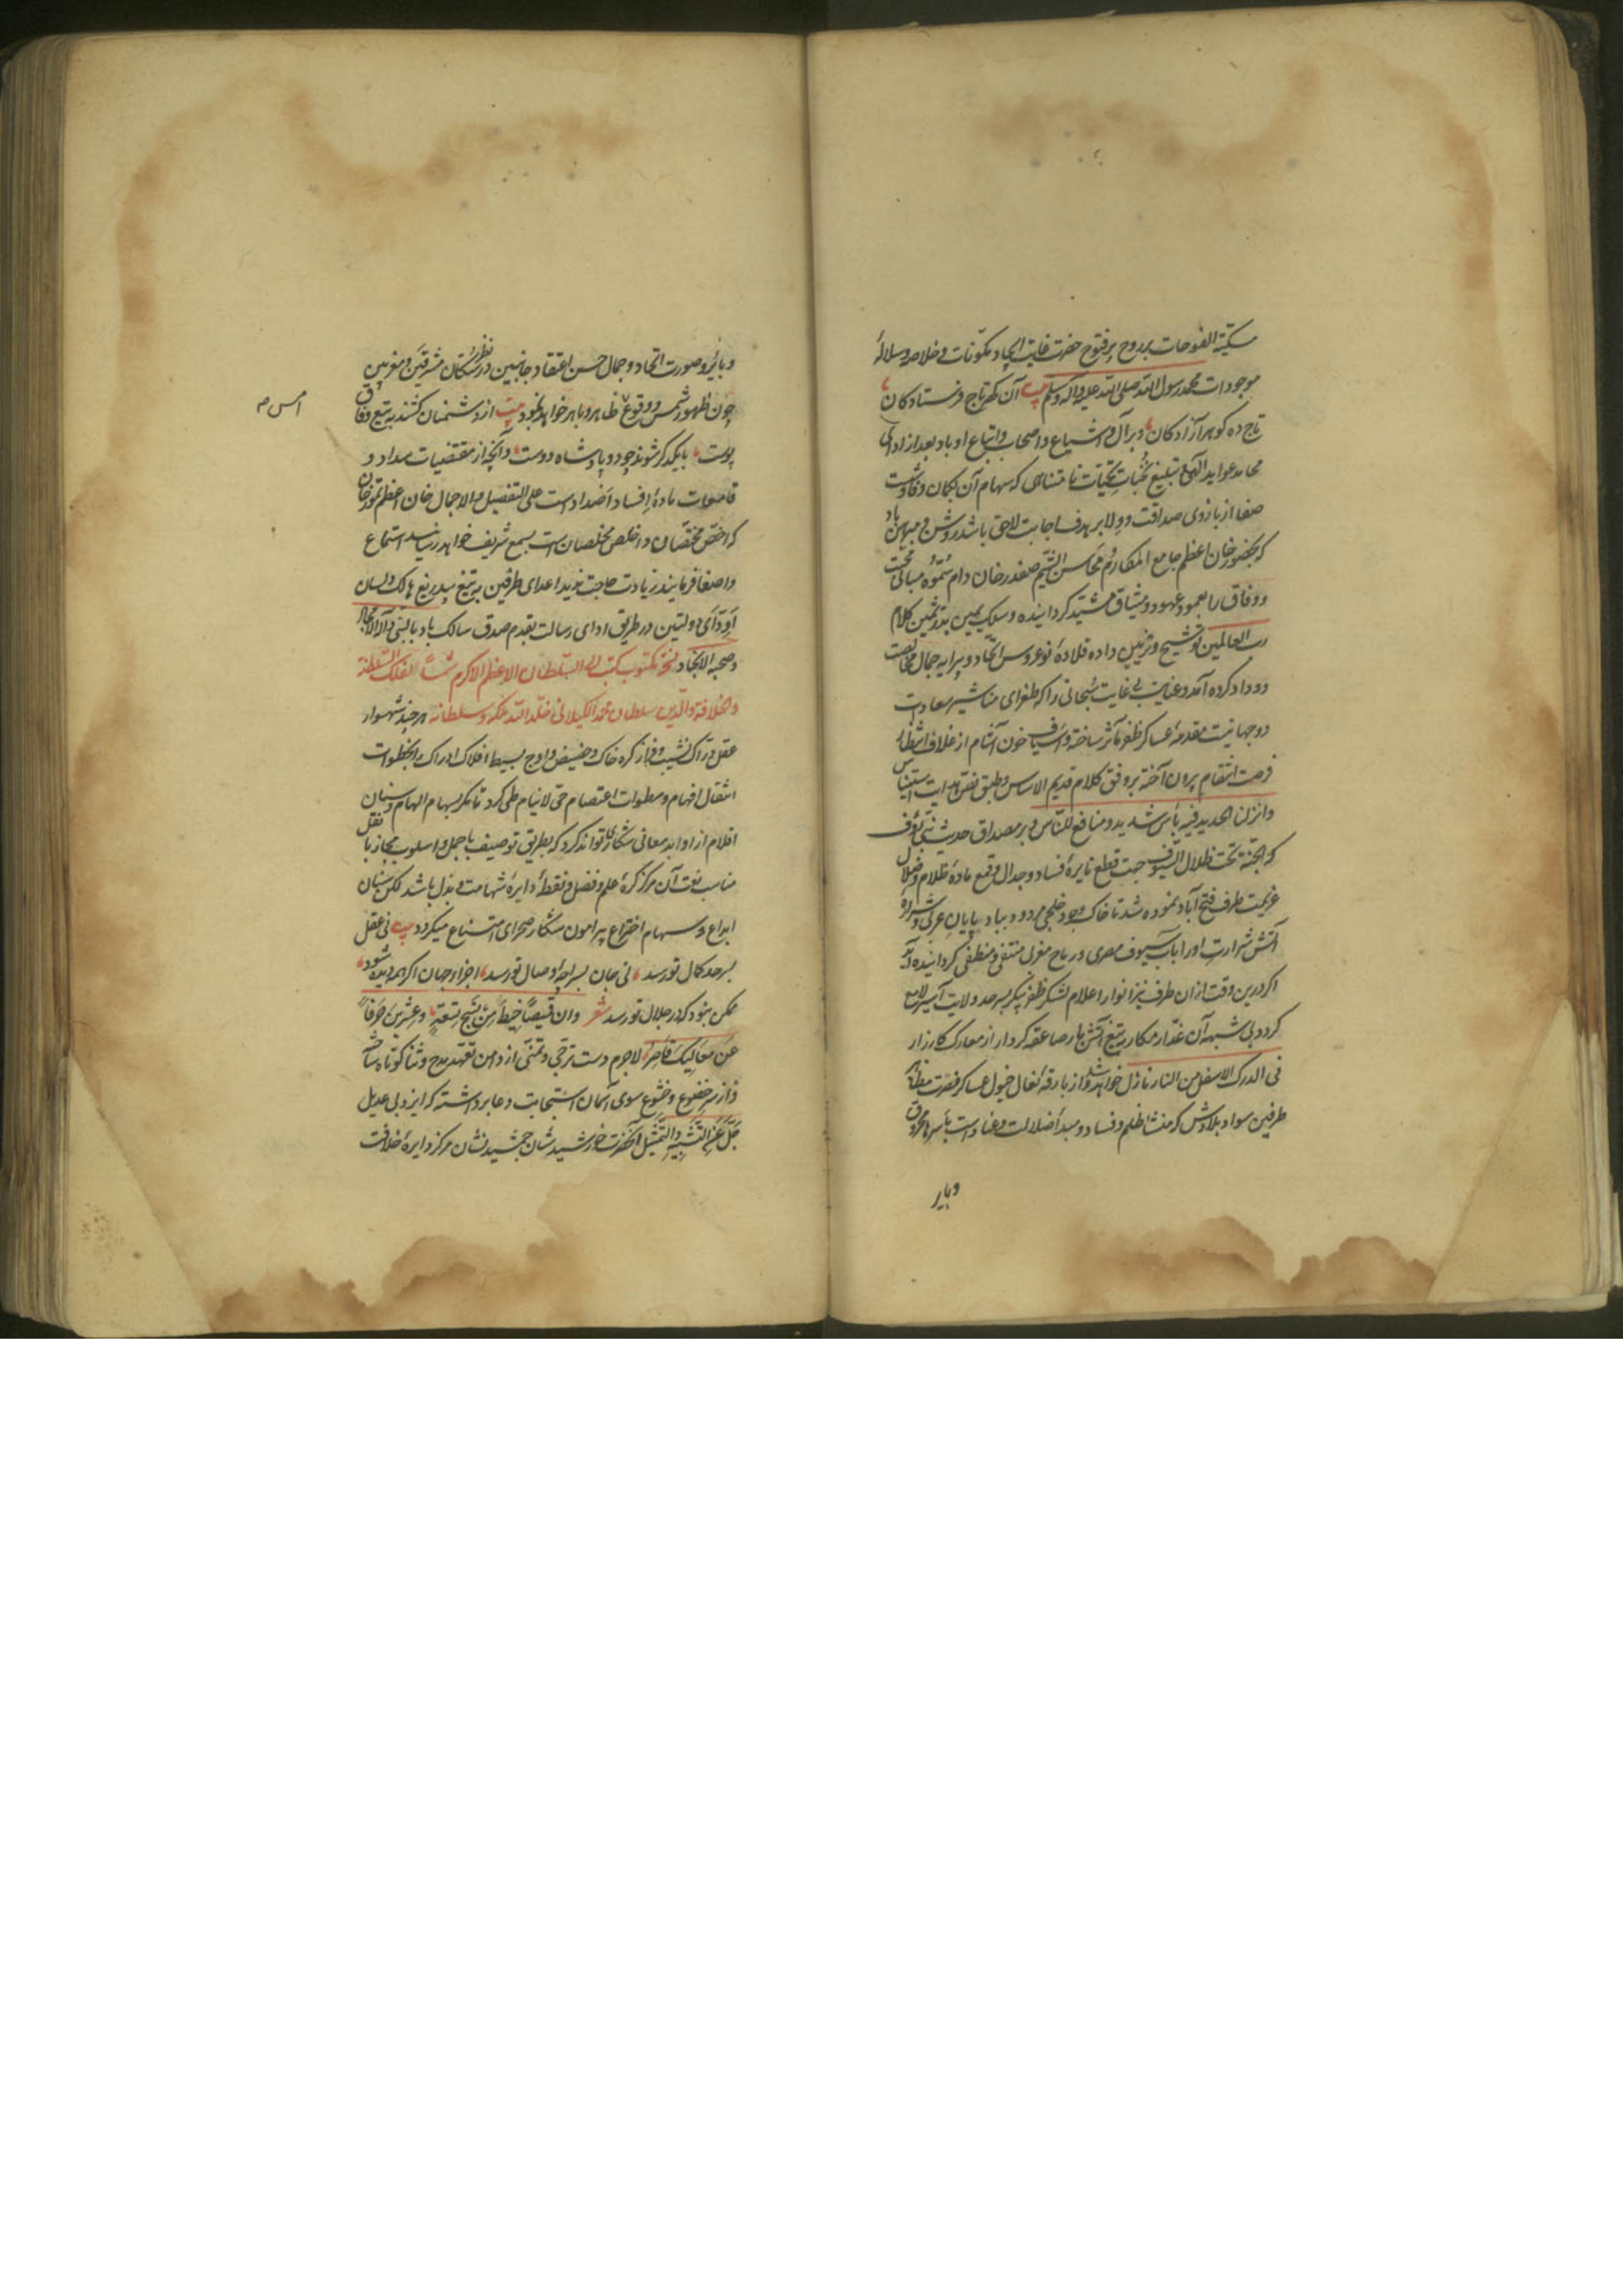 سکیة الفوحات بر روح پر فتوح حضرت غایت ایجاد مکونات و خلاصه و سلاله
موجودات محمد رسول الله صلی الله علیه و آله و سلم بیت آن گهر تاج فرستادکان
تاج ده کوهر آزادکان و بر آل و اشیاع و اصحاب و اتباع او باد بعد از ادای
محامد عواید الهی تبلیغ نخبات تحیّات نامتناهی که سهام آن بکمان وفا و شست
صفا از بازوی صداقت و ولا بر هدف اجابت لاحق باشد روشن و مبرهن باد
که بحضور خان اعظم جامع المکارم محاسن الشیم صفدر خان دام سموه مبانی محبت
و وفاق را بعمود عهود و میثاق مشید کردانیده و سلک یمین بدر ثمین کلام
رب العالمین توشیح و تزیین داده قلاده نو عروس اتحاد و پیرایه جمال
و وداد کرده آمد و عنایت بی غایت سبحانی را که طغرای مناشیر سعادت
دو جهانیت مقدمه عساکر ظفر مآثر ساخته و اسیاف خون آشام از غلاف انتظار
فرصت انتقام برون آخته بر وفق کلام قدیم الاساس و طبق نص هدایت استیناس
و انزلنا الحدید فیه بأس شدید و منافع للناس و بر مصداق حدیث نبی رؤف
که الجنة تحت ظلال السیوف جهت قطع نایره فساد و جدال و قمع ماده ظلام و ضلال
عزیمت طرف فتح آباد نموده شد تا خاک وجود خلجی مردود بباد بی پایان عرکی و شراره
آتش شرارت او را بآب سیوف مصری و رماح مغزلی منتفی و منطفی کردانیده آید
اکر درین وقت از ان طرف نیز انوار اعلام لشکر ظفر پیکر بر سرحد ولایت آسیر لامع
کردد بی شبهه آن غدار مکار بتیغ آتش بار صاعقه کردار از معارک کارزار
فی الدرک الاسفل من النار نازل خواهد شد و از بارقه نعال خیول عساکر نصرت مظاهر
طرفین سواد بلادش که منشأ ظلم و فساد و مبدأ ضلالت و عناد است بأسرها محروق
و بایر
و بایر و صورت اتحاد و جمال حسن اعتقاد جانبین در نظر سکان مشرقین و مغربین
چون ظهور شمس و وقوع ظاهر و باهر خواهد بود بیت از دشمنان کشند بتیغ وفاق
پوست بایکدکر شوند چو دو پادشاه دوست و آنچه از مقتضیات سداد و
امس م
قامعات ماده افساد اضداد است علی التفصیل و الاجمال خان اعظم تمور خان
که اخص مختصان و اخلص مخلصان است بسمع شریف خواهد رسانید استماع
و اصغا فرمایند زیادت حاجت ندید اعدای طرفین به تیغ بیدریغ هالک و لسان
اودّای دولتین در طریق ادای رسالت بقدم صدق سالک باد بالنبی و آله الامجاد
و صحبه الانجاد نسخه مکتوب کتب الی السلطان الاعظم الاکرم شمسا لفلک السلطنة
و الخلافة و الدین سلطان محمد الکیلانی خلد الله ملکه و سلطانه هر چند شهسوار
عقل دراک نشیب و فراز کره خاک و حضیض و اوج بسیط افلاک ادراک را بخطوات
انتقال افهام و سطوات اعتصام حی لاینام طی کرد تا مکر بسهام الهام و سنان
اقلام از اوابد معانی شکاری تواند کرد که بطریق توصیف یا جمل و اسلوب مجاز یا نقل
مناسب نعت آن مرکز کره علم و فضل و نقطه دایره شهامت و بذل باشد لکن سنان
ابداع و سهام اختراع پیرامون شکار صحرای امتناع میکردد بیت نی عقل
بسرحد کمال تو رسد نی جان بسراچه وصال تو رسد اجزاء جهان اکر همه دیده شود
ممکن نبود که در جلال تو رسد شعر و ان قمیصا خیط من نسج تسعة و عشرین حرفا
عن معالیک قاصر لاجرم دست ترجی و تمنی از دامن تعهد مدح و ثنا کوتاه ساخته
و از سر خضوع و خشوع سوی آسمان استجابت دعا برداشته که ایزد بی عدیل
جل عن التشبیه و التمثیل آنحضرت خورشید شان جمشید نشان مرکز دایره خلافت